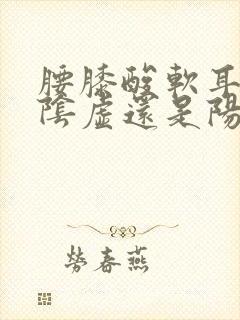 腰膝酸軟耳
陰虛還是陽
勞春燕